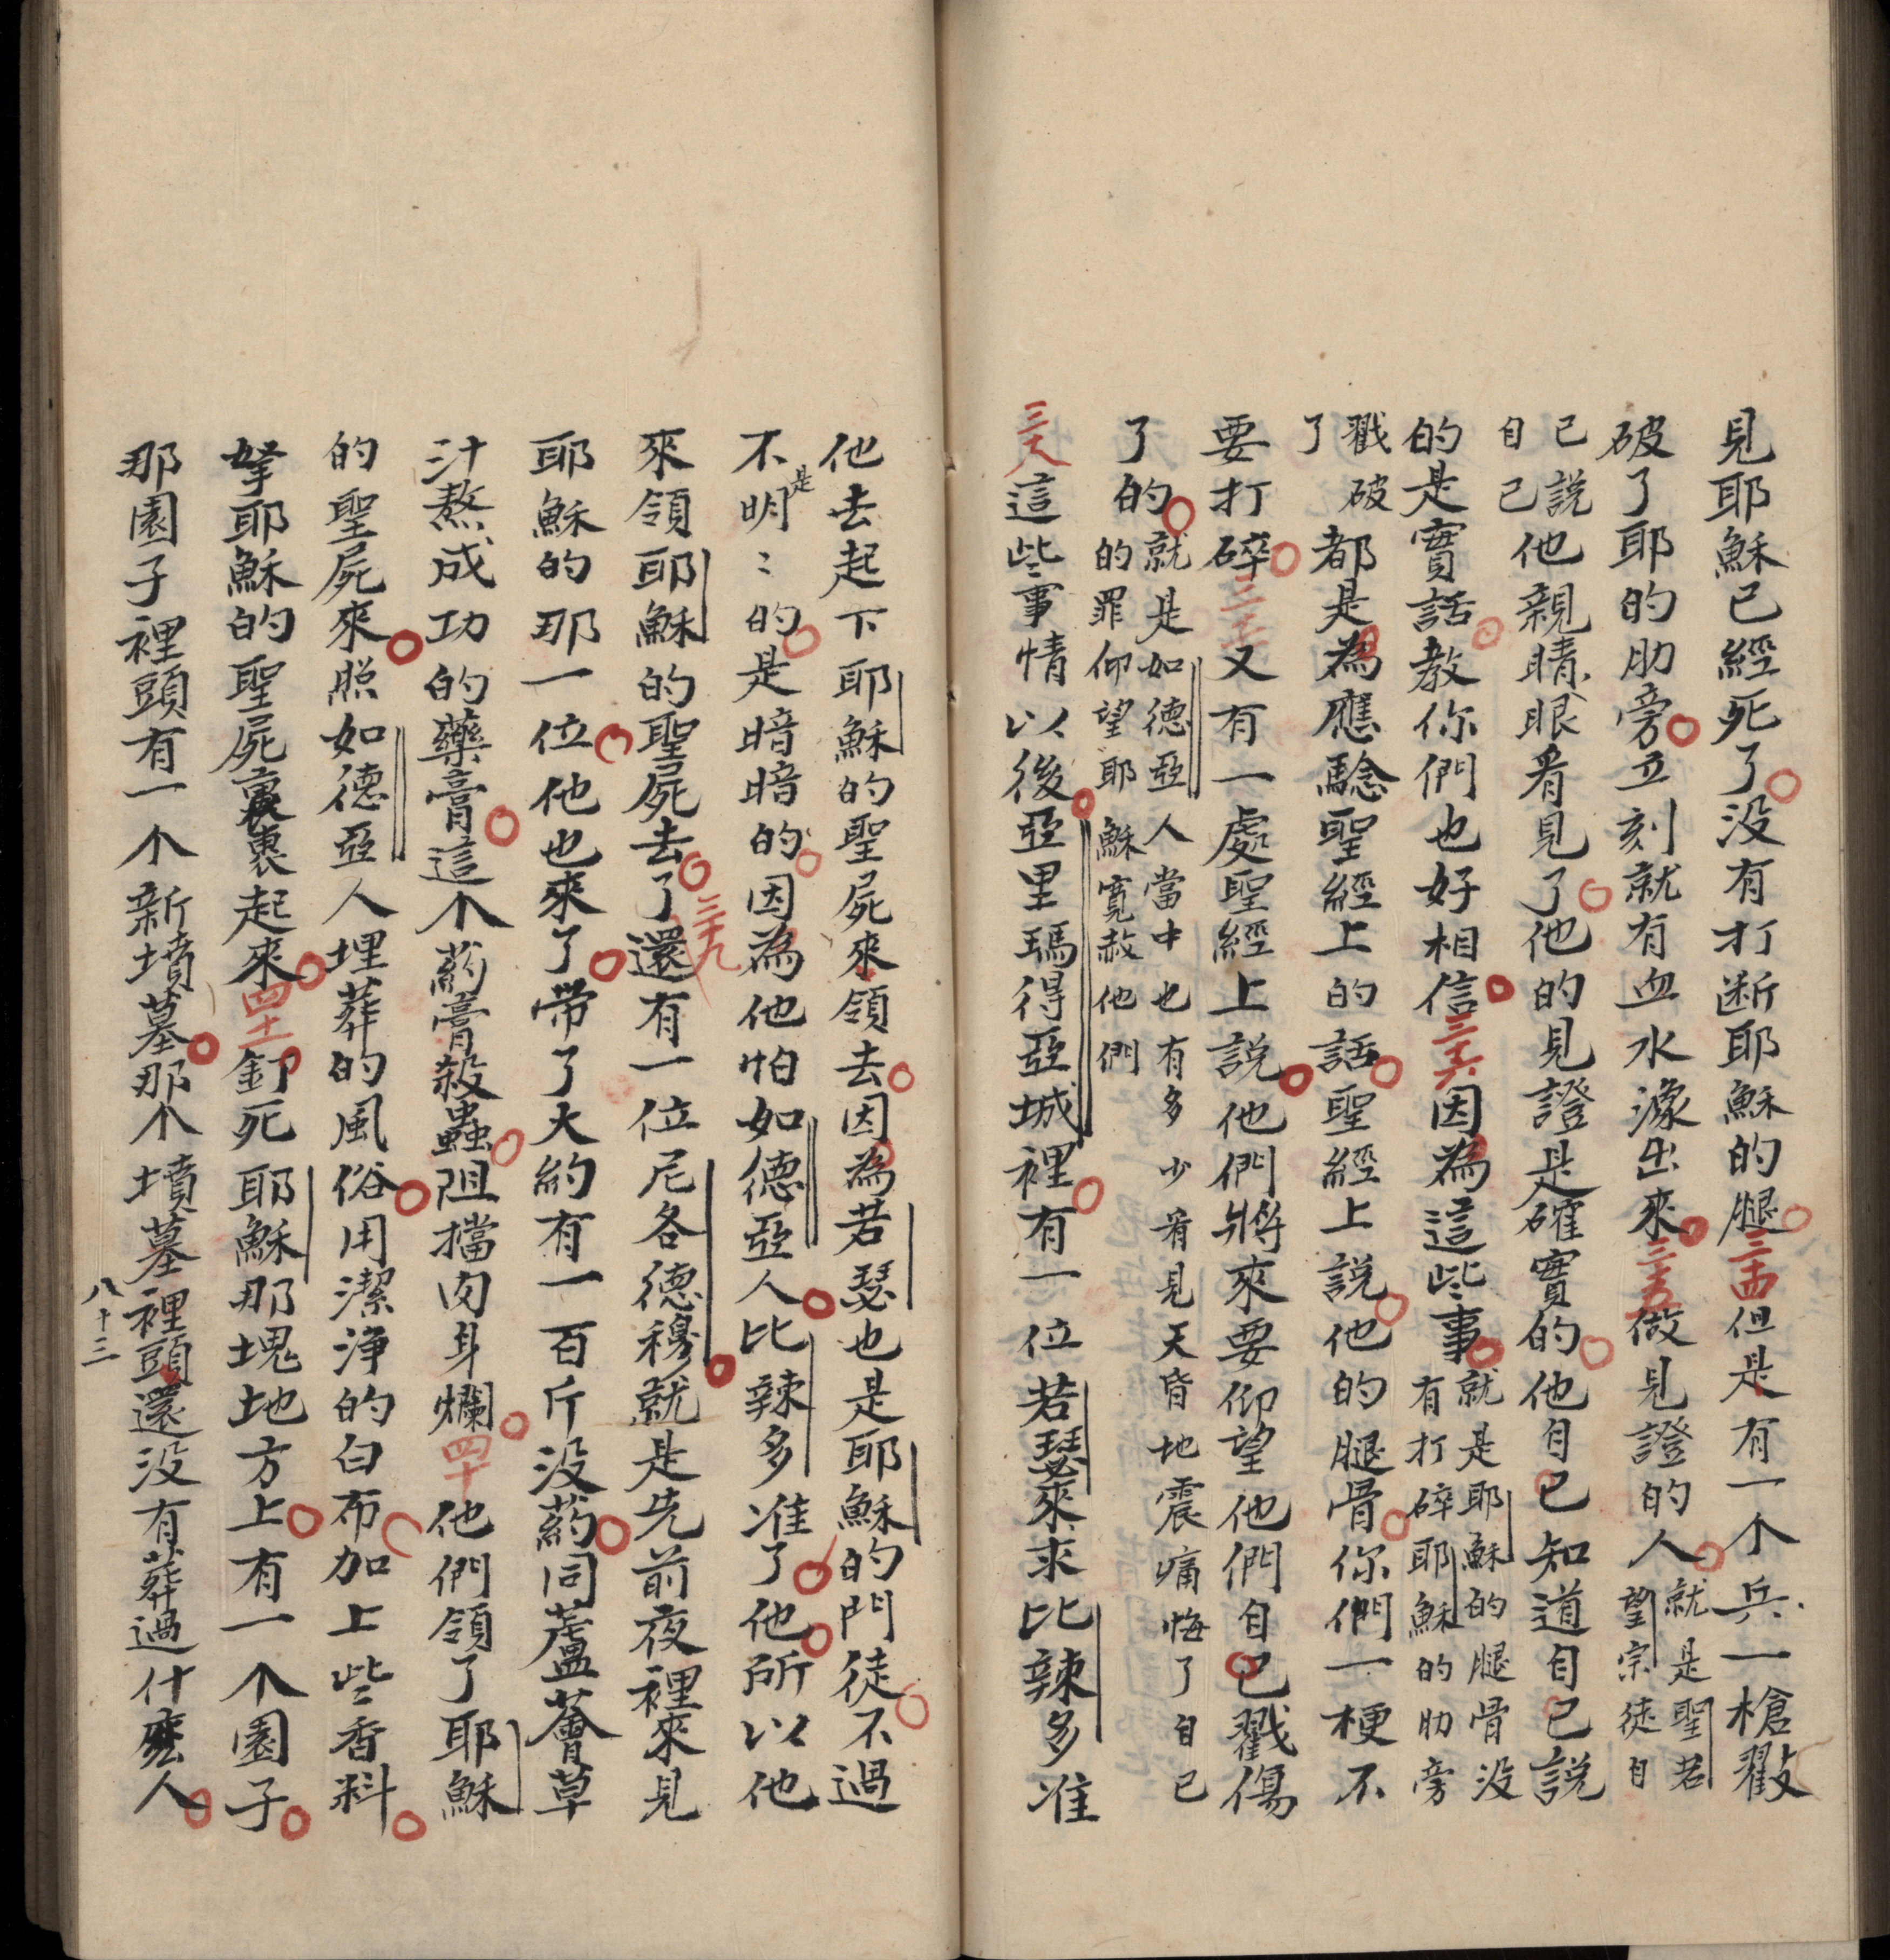 見耶穌已經死了没有打断耶穌的腿三十四但是有一个兵一槍戳
破了耶的肋旁立刻就有血水濠出來三十五做見證的人就是聖若
望宗徒自
己說
自己他親睛眼看見了他的見證是確實的他自已知道自已説
的是實話教你們也好相信三十六因為這些事就是耶穌的腿骨没
有打碎耶穌的肋旁
戳破
了都是為應驗聖經上的話聖經上説他的腿骨你們一梗不
要打碎三十七又有一處聖經上説他們將來要仰望他們自已戳傷
了的就是如德亞人當中也有多少看見天昏地震痛悔了自已
的罪仰望耶穌寬赦他們
三十八這些事情以後亞里瑪得亞城裡有一位若瑟來求比辣多准
他去起下耶穌的聖屍來領去因為若瑟也是耶穌的門徒不過
不是明〻的是暗暗的因為他怕如德亞人比辣多准了他所以他
來領耶穌的聖屍去了三十九還有一位尼各德穆就是先前夜裡來見
耶穌的那一位他也來了帶了大約有一百斤没葯同蘆薈草
汁熬成功的藥膏這个葯膏殺蟲阻擋肉身爛四十他們領了耶穌
的聖屍來照如德亞人埋葬的風俗用潔净的白布加上些香料
拏耶穌的聖屍裹裹起來四十一釘死耶穌那塊地方上有一个園子
那園子裡頭有一个新墳墓那个墳墓裡頭還没有葬過什麽人
八十三